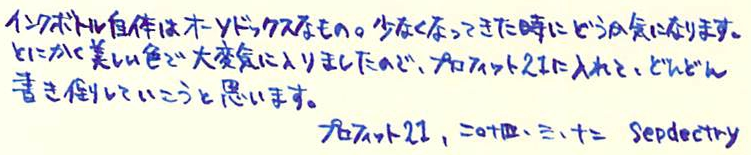 インクボトル自体はオーソドックスなもの。少なくなってきた時にどうか気になります。
とにかく美しい色で大変気に入りましたので、プロフィット21に入れて、どんどん
書き倒していこうと思います。
プロフィット21、二〇十四、三、十二 Sepdectry